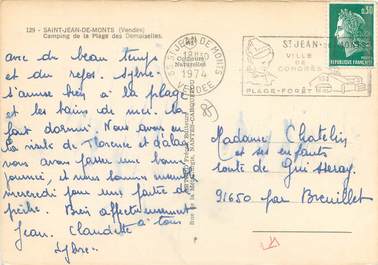 129 - SAINT-JEAN-DE-MONTS (Vendée)
Camping de la Plage des Demoiselles.
avec du beau temps
et du repos. Sylvie
s'amuse bien à la plage
et les bains de mer la
font dormir. Nous avons eu
la visite de Florence et d'alain
nous avons passé une bonne
journée, et nous sommes
mercredi pour une partie de
pêche. Bien affectueusement
Jean. Claudette à tous
Sylvie
Couleurs
Naturelles
85 ST JEAN DE MONTS
18H30
1974
VENDEE
ST JEAN - DE MONTS
VILLE
DE
CONGRÈS
PLAGE-FORÊT
0.50
REPUBLIQUE FRANÇAISE
Madame Chatelin
et ses enfants
route de Gui
91650 par Breuillet